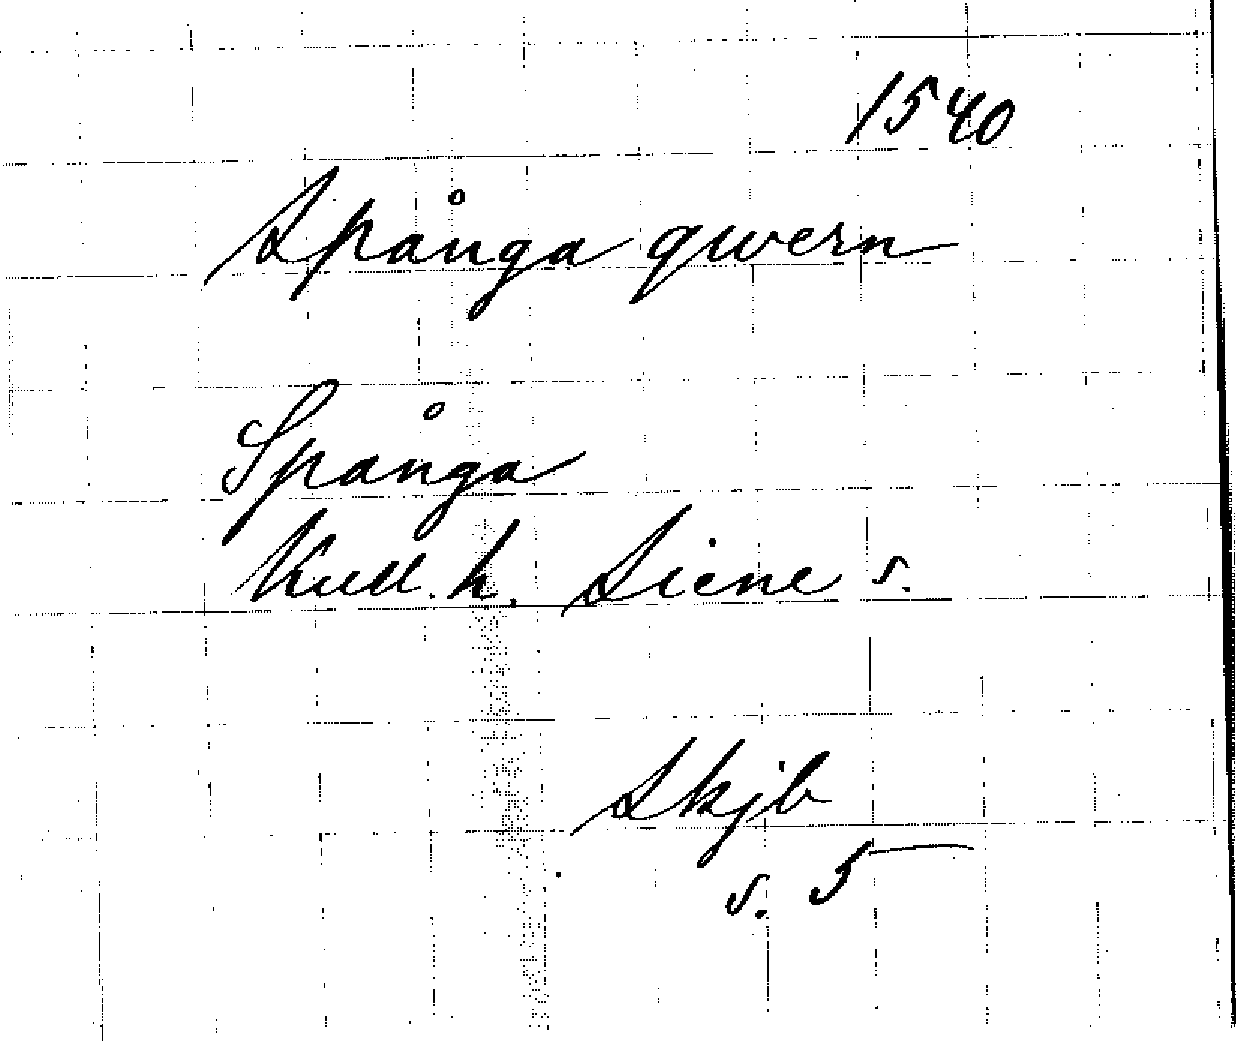 1540
Spånga qwern
Spånga
Kull. h. Siene s.
Skjb
s. 5